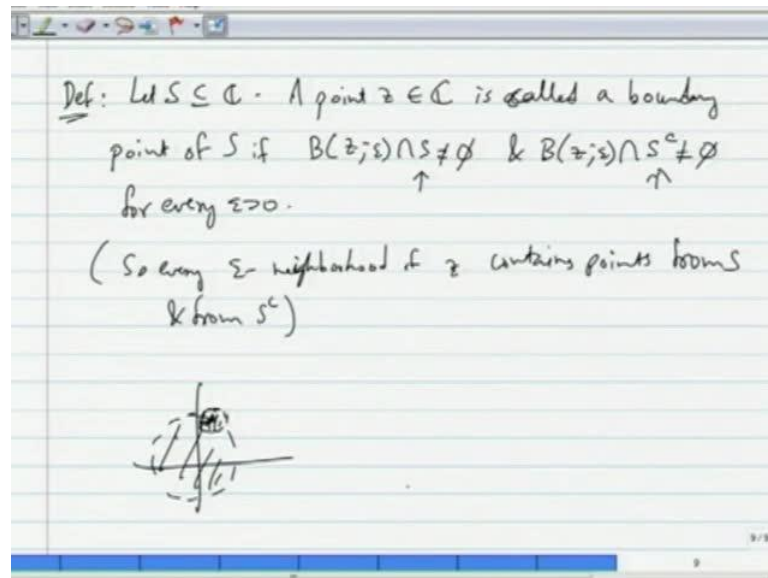 Def: Let S ⊆ ℂ. A point z ∈ ℂ is called a boundary
point of S if B(z;ε)∩S ≠ ∅ & B(z;ε)∩S^c ≠ ∅
for every ε>0.
(So every ε- neighborhood of z contains points from S
& from S^c)
9/9
9